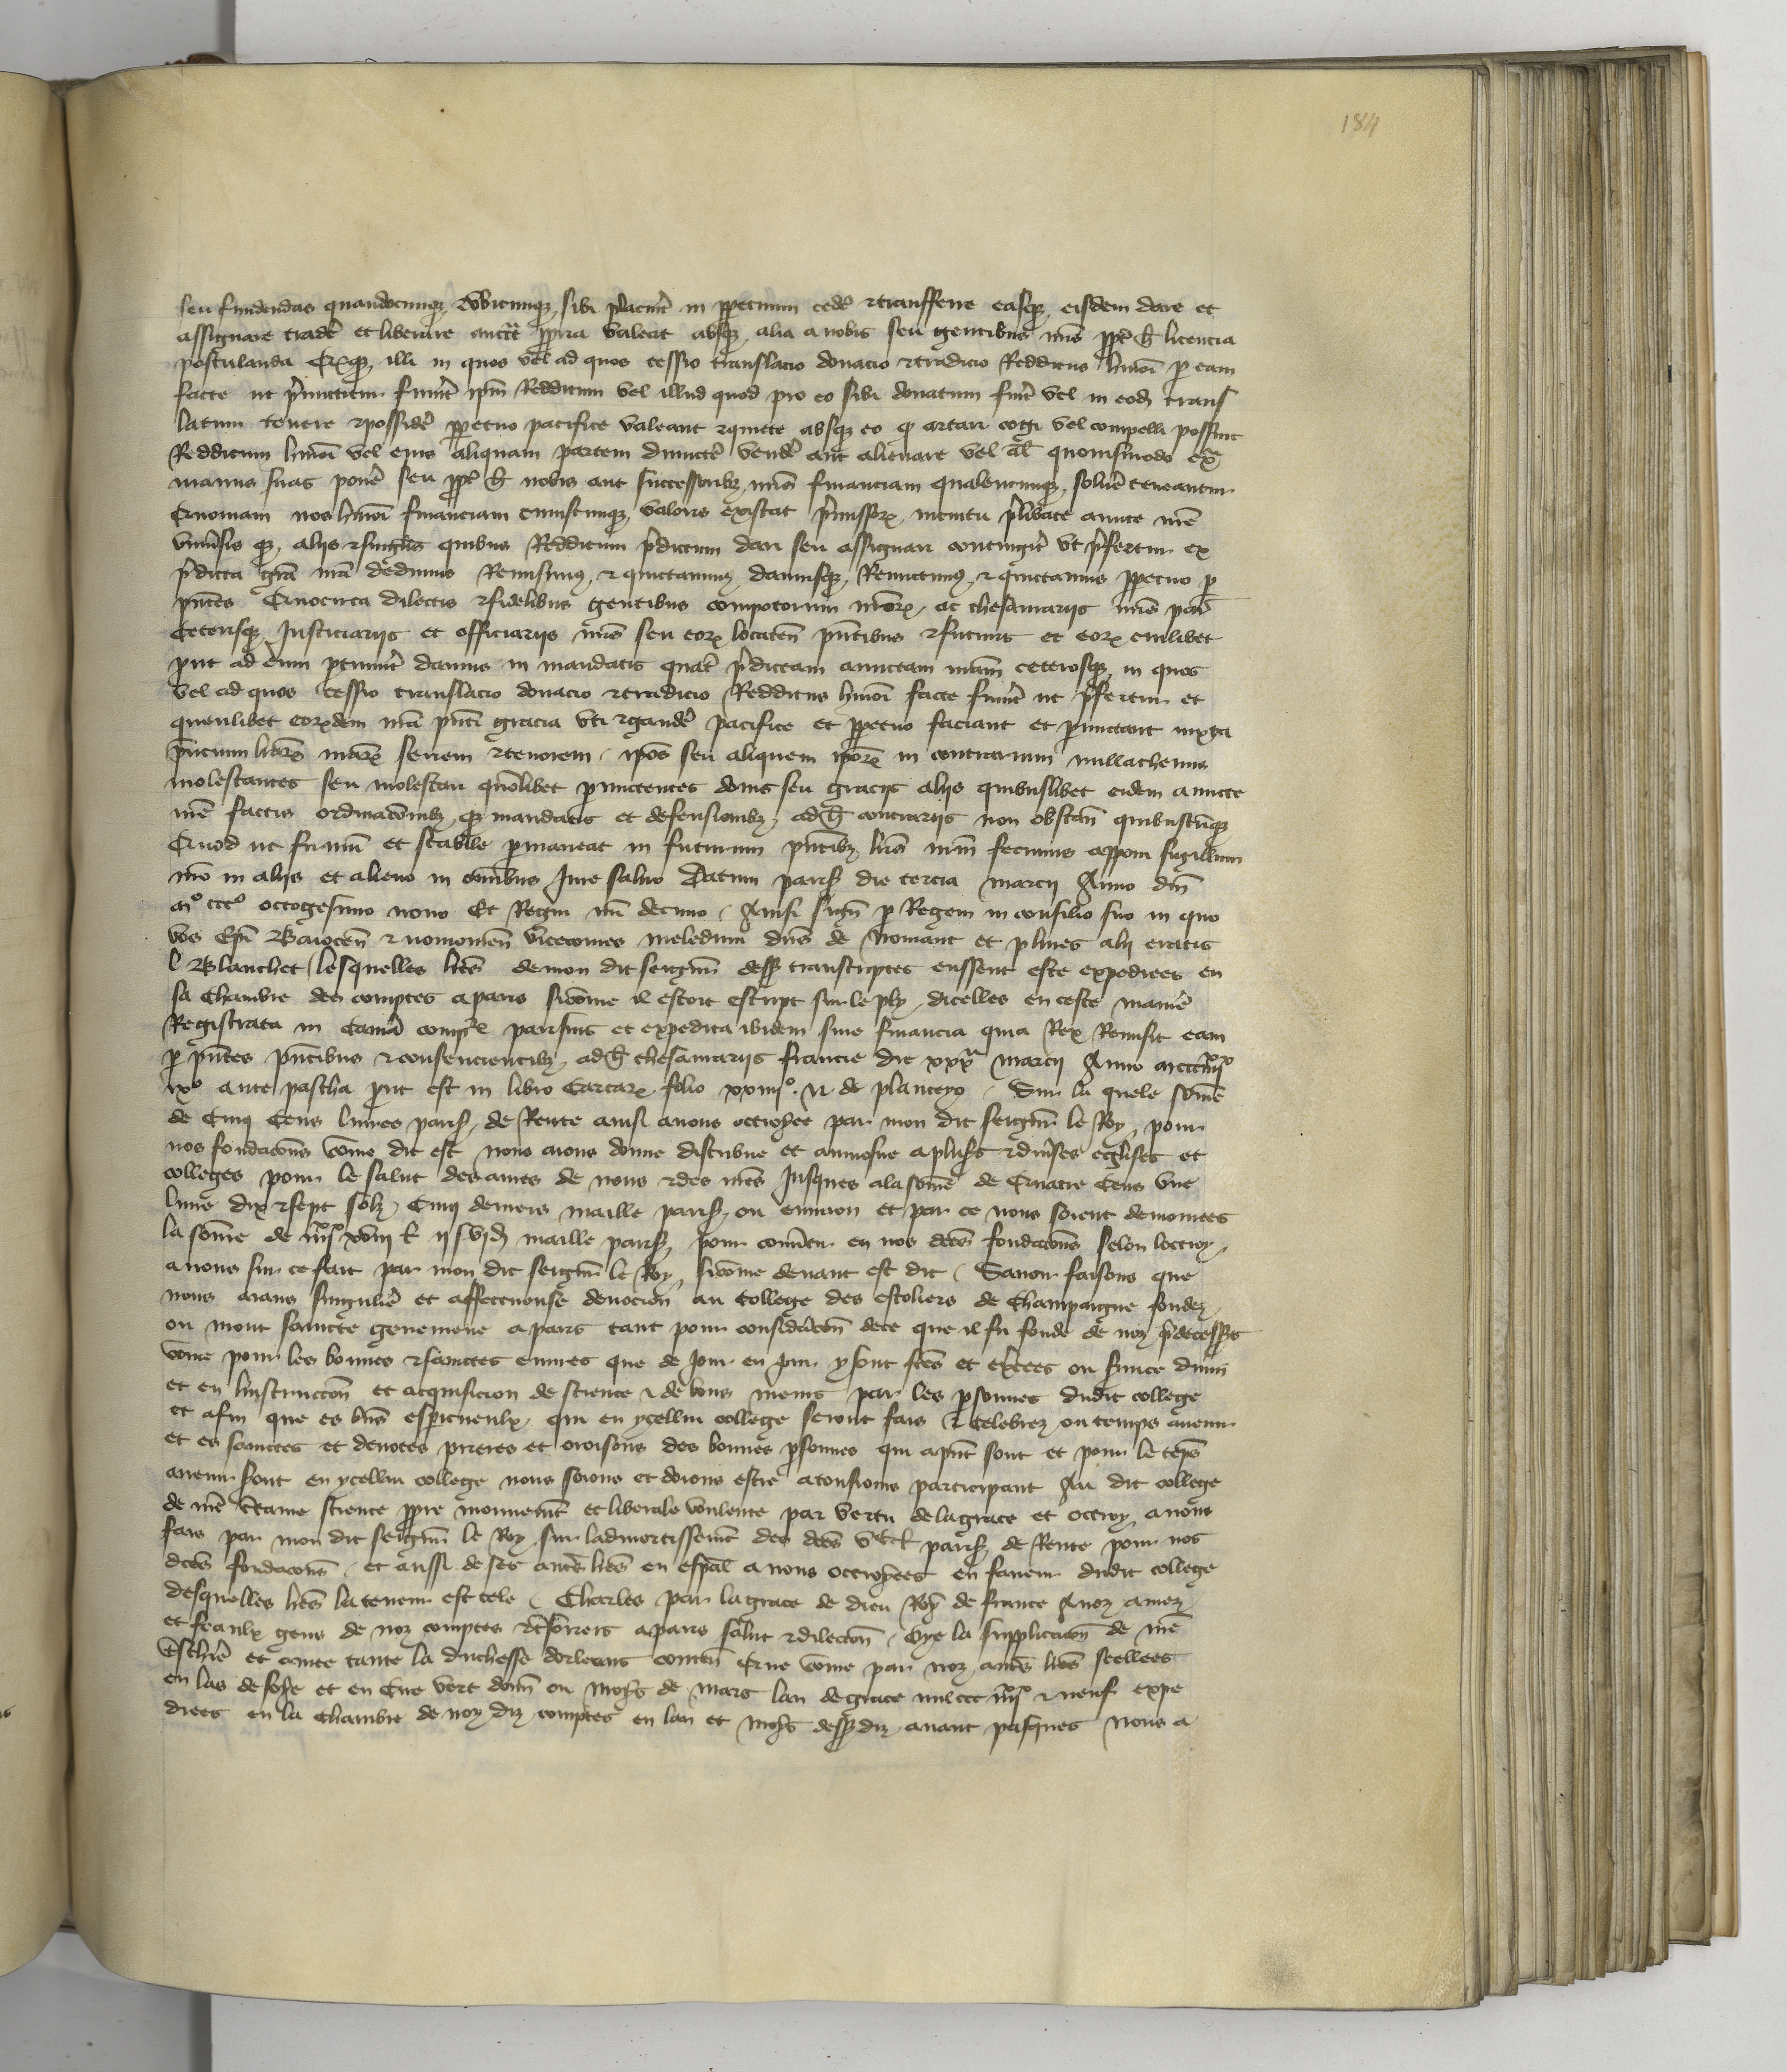 184
seu fundendas quandocunq₃ Et ubicunq₃ sibi placuit in ppetuum ced'e ⁊ transferre easq₃ eisdem dare et
assignare trad'e et liberare auct'te ppria valeat absq₃ alia a nobis seu gentibus nr̄is ppt' h' licencia
postulanda Et q̧ illi in quos vel ad quos cessio translacio donacio ⁊ tradicio Redditus hmōi p eam
facte ut p'mittitur fuerīt ip̄m Redditum vel illud quod pro eo sibi donatum fu'it vel in eod' trans
latum tenere ⁊ possid'e ppetuo pacifice valeant ⁊ quiete absq₃ eo q̧ artari cogi vel compelli possint
Redditum hmōi vel eius aliquam partem dimitt'e vend'e aut alienare vel al' quomodo ext'a
manus suas pon'e seu ppt' h' nobis aut successorib₃ nr̄is financiam qualencunq₃ solu'e teneantur
Quoniam nos hmōi financiam cuiuscunq₃ valoris existat p'missor₄ intuitu p'libate amite nr̄e
vniu'sis q₃ aliis ⁊ singulis quibus Redditum p'dictum dari seu assignari contingit vt p'fertur ex
p'dicta gr̄a nr̄a dedimus Remisimus ⁊ quictauimus damusq₃ Remittimus ⁊ quictamus ppetuo p
pn̄tes Quocirca dilectis ⁊ fidelibus gentibus compotorum nr̄or₄ ac thesaurariis nr̄is par'
Ceterisq₃ Justiciariis et officiariis nr̄is seu eor₄ locaten̄ pn̄tibus ⁊ futuris et eor₄ cuilibet
prut ad eum ptinu'it damus in mandatis quat' p'dictam amictam nr̄am ceterosq₃ in quos
vel ad quos cessio translacio donacio ⁊ tradicio Redditus hmōi facte fuerīt ut p'fertur et
quemlibet eor₄dem nr̄a pn̄ti gracia vti ⁊ gaud'e pacifice et ppetuo faciant et pmittant iuxta
pn̄cium litter₄ nr̄ar₄ seriem ⁊ tenorem ip̄os seu aliquem ipor₄ in contrarium nullathenus
molestantes seu molestari quolibet pmittentes donis seu graciis aliis quibuslibet eidem amicte
nr̄e factis ordinacōnib₃ q₃ mandatis et defensionib₃ ad h' contrariis non obstan̄ quibuscūq₃
Quod ut firmū et stabile pmaneat in futurum pn̄tib₃ litt'is nr̄m fecimus apponi sigillum
nr̄o in aliis et alieno in om̄ibus Jure saluo Datum parisi' die tercia marcii Anno dn̄i
mº cccº octogesimo nono Et Regni nr̄i decimo Ainsi sign' p Regem in consilio suo in quo
vos Ep̄i Baiocen̄ ⁊ nouiomen̄ vicecomes meleduni dn̄s de Nouiant et plures alii eratis
l Blanchet lesquelles lr̄es de mon dit seign' dess' transcriptes eussent este expediees en
sa Chambre des comptes a paris sicōme il estoit escript sur le ply dicelles en ceste manie'
Registrata in Cam'a compo' parisius et expedita ibidem sine financia quia Rex Remisit eam
p pn̄tes pn̄tibus ⁊ consencientib₃ ad h' thesaurariis francie die xxxª marcii Anno mccciiii××
ixº ante pascha prut est in libro Cartar₄ folio xxiiiiº. N de planceyo Sur la quele sōme
de Cinq Cens liures paris' de Rente ainsi a nous octroyee par mon dit seign' le Roy pour
nos fondacōns cōme dit est nous aions donne distribue et aumosne a plus's ⁊ diu'ses eglises et
colleges pour le salut des ames de nous ⁊ des nr̄es Jusques a la sōme de Quatre Cens vne
liure dix ⁊ sept solz Cinq deniers maille paris' ou enuiron et par ce nous soient demourees
la sōme de iiii××xviii £ ii s vi d' maille paris' pour conu'tir en nos dc̄es fondacōns selon loctroy
a nous sur ce fait par mon dit seign' le Roy sicōme deuant est dit Sauoir faisons que
nous aians singulie' et affectueuse deuocion au College des escoliers de Champaigne fondez
ou mont saincte geneuieue a paris tant pour consid'acōn de ce que il fu fonde de noz p'decess's
cōme pour les bonnes ⁊ sainctes euures que de jour en jour y sont fc̄es et exc'cees ou s'uice diuin
et en linstruccōn et acquisicion de science ⁊ de bons meurs par les psonnes dudit college
et afin que es bn̄s espirituelx qui en ycellui college seront fais ⁊ celebrez ou temps auenir
et es sainctes et deuotes prieres et oroisons des bonnes psonnes qui a pn̄t sont et pour le tēps
auenir s'ont en ycellui college nous soions et doions estre a tousiours participant Au dit college
de nr̄e c'taine science ppre mouuemēt et liberale voulente par vertu de la grace et octroy a nous
fais par mon dit seign' le Roy sur ladmortissemēt des dc̄es vᶜ £ paris' de Rente pour nos
dc̄es fondacōns et aussi de ses aut'es lr̄es en esp̄al a nous octroyees en faueur dudit college
desquelles lr̄es la teneur est tele Charles par la grace de dieu Roy de france A noz amez
et feaulx gens de noz comptes ⁊ t'soriers a paris salut ⁊ dileccōn Oye la supplicacōn de nr̄e
t'schie'e et amee tante la duchesse dorleans conten̄ Que cōme par noz aut'es lr̄es seellees
en las de soye et en Cire vert donn' ou moys de mars lan de grace mil ccc iiii×× ⁊ neuf expe
diees en la Chambre de noz diz comptes en lan et moys dess'diz auant pasques Nous a